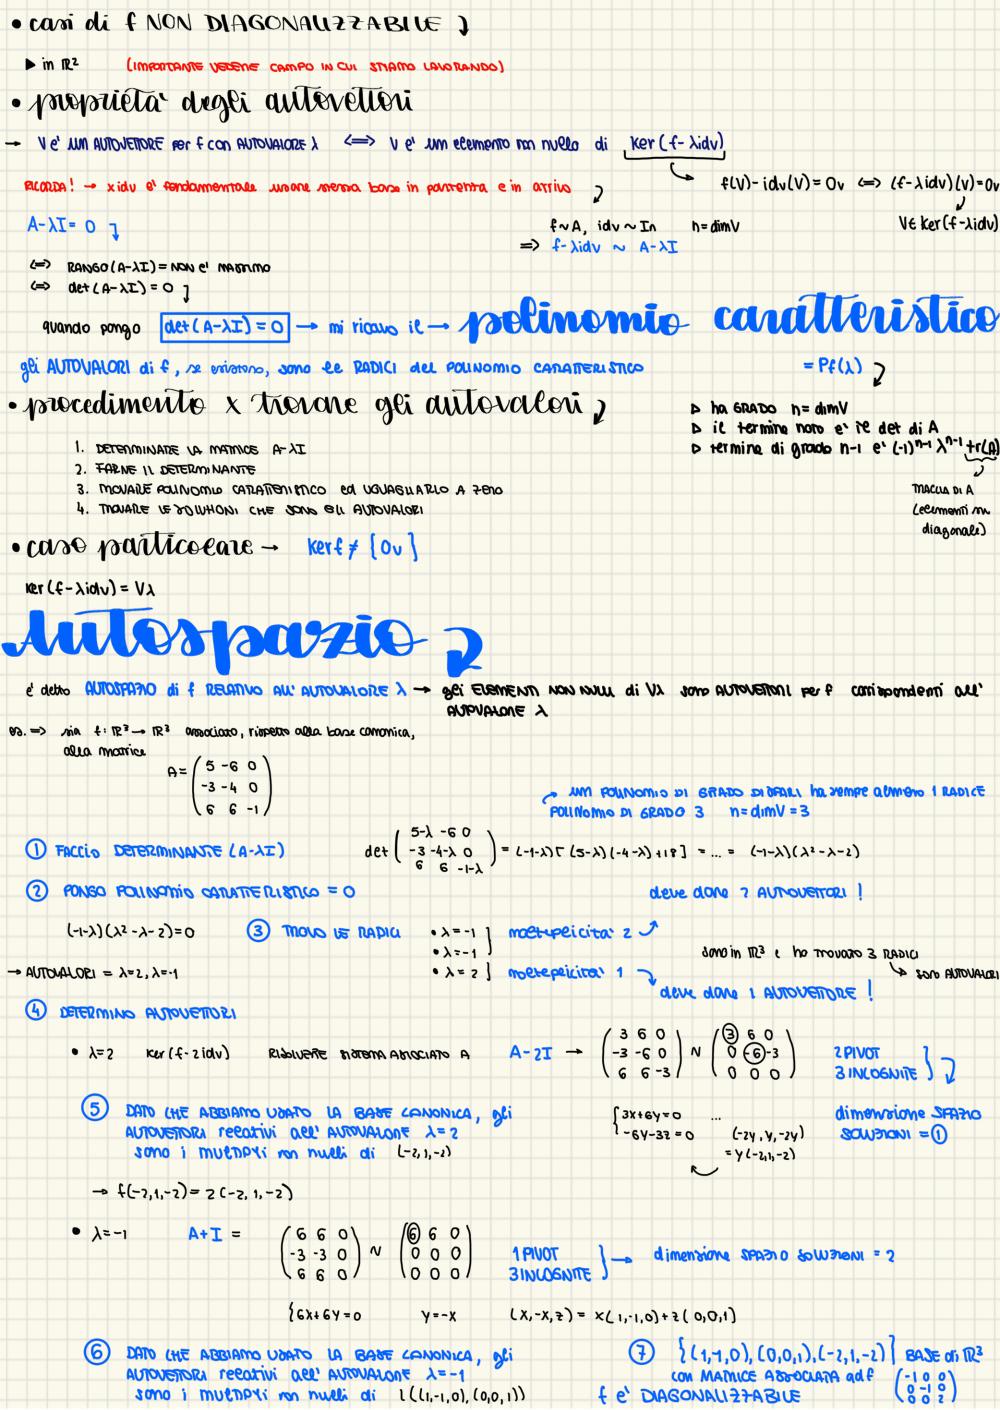 • casi di f NON DIAGONALIZZABILE
▶ in ℝ² (IMPORTANTE VEDERE CAMPO IN CUI STIAMO LAVORANDO)
• proprietà degli autovettori
→ V e' UN AUTOVETTORE per f con AUTOVALORE λ ⟺ V e' un elemento non nullo di Ker(f-λidv)
RICORDA! → x idv e' fondamentale usare stessa base in partenza e in arrivo
f(V)-idv(V)=0v ⟺ (f-λidv)(v)=0v
V∈Ker(f-λidv)
A-λI=0
f~A, idv~In n=dimV
⇒ f-λidv ~ A-λI
⟺ RANGO(A-λI)=NON E' MASSIMO
⟺ det(A-λI)=0
quando pongo det(A-λI)=0 → mi ricavo il → polinomio caratteristico
gli AUTOVALORI di f, se esistono, sono le RADICI del POLINOMIO CARATTERISTICO
= Pf(λ)
• procedimento x trovare gli autovalori
▷ ha GRADO n=dimV
▷ il termine noto e' il det di A
▷ termine di grado n-1 e' (-1)ⁿ⁻¹ λⁿ⁻¹ tr(A)
TRACCIA DI A
(elementi su
diagonale)
1. DETERMINARE LA MATRICE A-λI
2. FARNE IL DETERMINANTE
3. TROVARE POLINOMIO CARATTERISTICO ed UGUAGLIARLO A ZERO
4. TROVARE LE SOLUZIONI CHE SONO GLI AUTOVALORI
• caso particolare → Kerf ≠ {0v}
Ker(f-λidv)=Vλ
Autospazio
e' detto AUTOSPAZIO di f RELATIVO ALL'AUTOVALORE λ → gli ELEMENTI NON NULLI di Vλ sono AUTOVETTORI per f corrispondenti all'
AUTOVALORE λ
es. ⇒ sia f: ℝ³→ℝ³ associato, rispetto alla base canonica,
alla matrice
A= (5 -6 0
-3 -4 0
6 6 -1)
UN POLINOMIO DI GRADO DISPARI ha sempre almeno 1 RADICE
POLINOMIO DI GRADO 3 n=dimV=3
① FACCIO DETERMINANTE (A-λI)
det (5-λ -6 0
-3 -4-λ 0
6 6 -1-λ) = (-1-λ)[(5-λ)(-4-λ)+18] = ... = (-1-λ)(λ²-λ-2)
② PONGO POLINOMIO CARATTERISTICO = 0
deve dare 2 AUTOVETTORI!
(-1-λ)(λ²-λ-2)=0
③ TROVO LE RADICI
• λ=-1
• λ=-1 molteplicita' 2
• λ=2 molteplicita' 1
sono in ℝ³ e ho trovato 3 RADICI
SONO AUTOVALORI
→ AUTOVALORI = λ=2, λ=-1
deve dare 1 AUTOVETTORE!
④ DETERMINO AUTOVETTORI
• λ=2 Ker(f-2idv) RISOLVERE SISTEMA ASSOCIATO A A-2I → (3 6 0
-3 -6 0
6 6 -3) ~ (3 6 0
0 -6 -3
0 0 0)
2 PIVOT
3 INCOGNITE
dimensione SPAZIO
SOLUZIONI = ①
⑤ DATO CHE ABBIAMO USATO LA BASE CANONICA, gli
AUTOVETTORI relativi all'AUTOVALORE λ=2
sono i multipli non nulli di (-2,1,-2)
{3x+6y=0 ...
-6y-3z=0
(-2y, y, -2y)
= y(-2,1,-2)
→ f(-2,1,-2)= 2(-2,1,-2)
• λ=-1 A+I = (6 6 0
-3 -3 0
6 6 0) ~ (6 6 0
0 0 0
0 0 0)
1 PIVOT
3 INCOGNITE → dimensione SPAZIO SOLUZIONI = 2
{6x+6y=0 y=-x (x,-x,z) = x(1,-1,0)+z(0,0,1)
⑥ DATO CHE ABBIAMO USATO LA BASE CANONICA, gli
AUTOVETTORI relativi all'AUTOVALORE λ=-1
sono i multipli non nulli di L((1,-1,0),(0,0,1))
⑦ {(1,-1,0),(0,0,1),(-2,1,-2)} BASE di ℝ³
con MATRICE ASSOCIATA ad f (-1 0 0
0 -1 0
0 0 2)
f e' DIAGONALIZZABILE